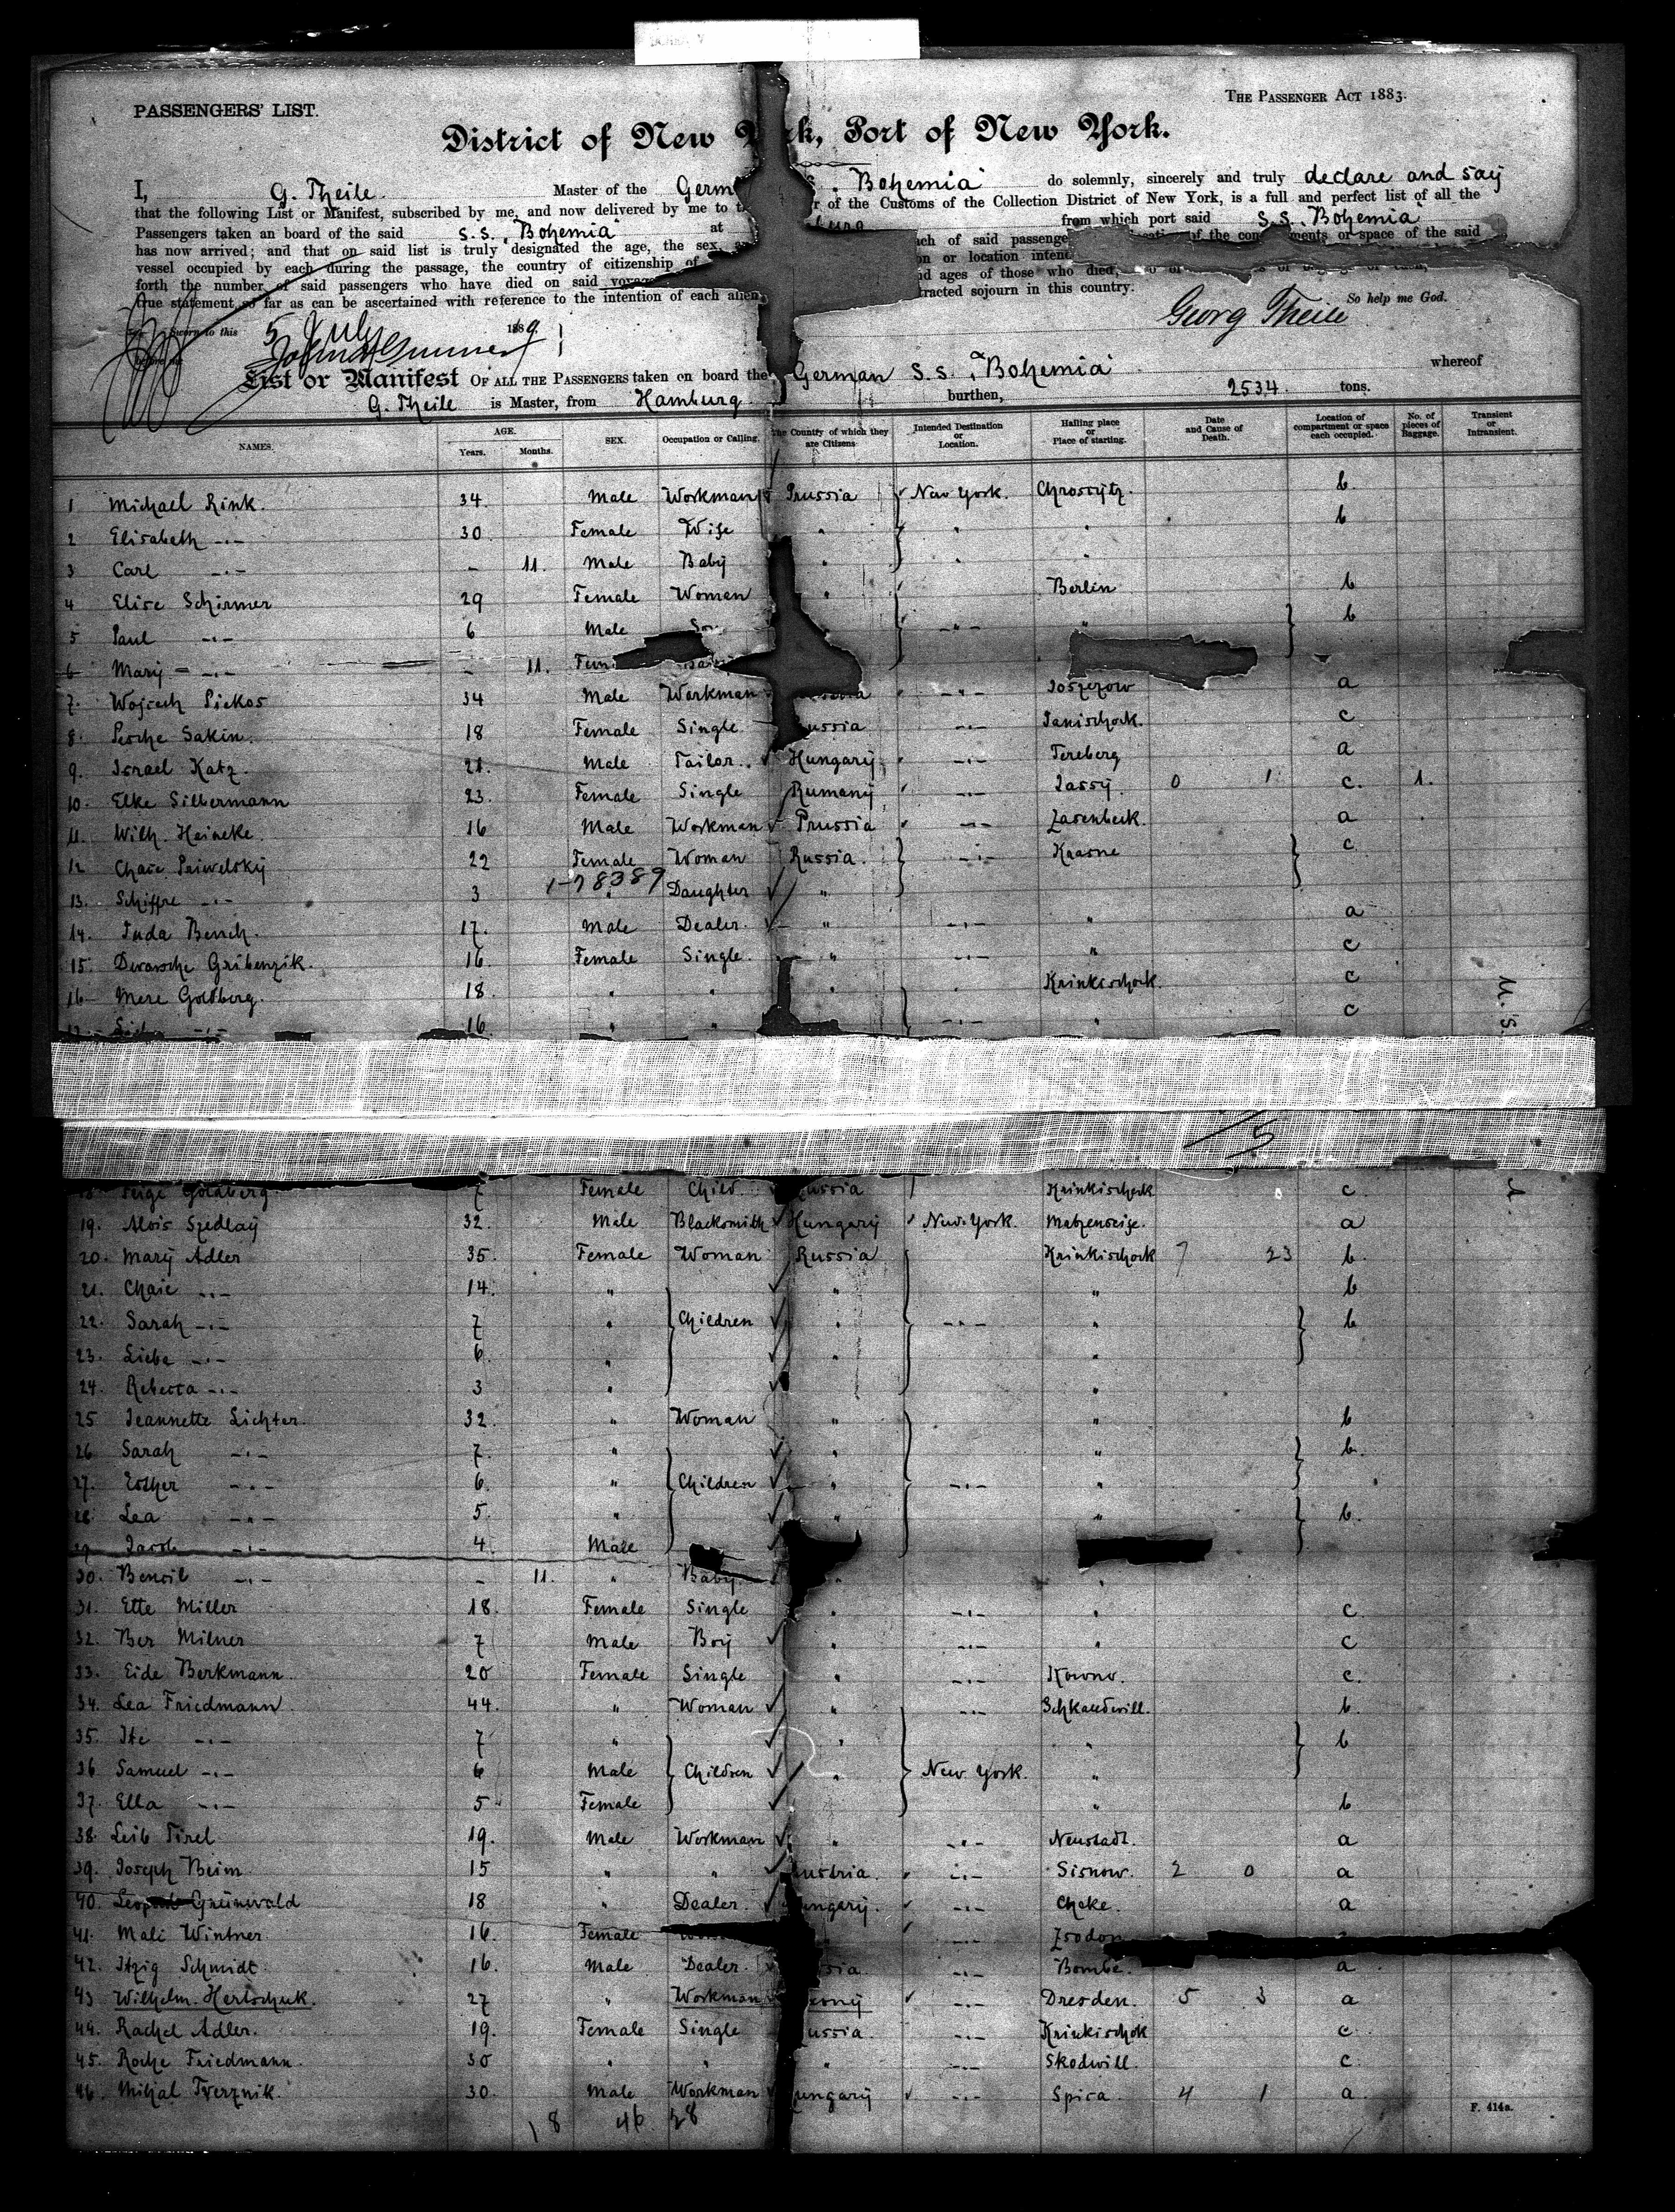 PASSENGERS' LIST.
THE PASSENGER ACT 1883.
District of New York, Port of New York.
I, G. Theile Master of the Germ S. "Bohemia" do solemnly, sincerely and truly declare and say
that the following List or Manifest, subscribed by me, and now delivered by me to t r of the Customs of the Collection District of New York, is a full and perfect list of all the
Passengers taken an board of the said S.S. "Bohemia" at burg from which port said S.S. Bohemia
has now arrived; and that on said list is truly designated the age, the sex, ach of said passenge of the com ments or space of the said
vessel occupied by each during the passage, the country of citizenship of on or location intend
forth the number of said passengers who have died on said voyage nd ages of those who died,
true statement so far as can be ascertained with reference to the intention of each alien tracted sojourn in this country.
So help me God.
Georg Theile
Sworn to this 5 July 1889
before me
List or Manifest OF ALL THE PASSENGERS taken on board the German S.S. "Bohemia" whereof
G. Theile is Master, from Hamburg burthen, 2534 tons.
NAMES. AGE. Years. Months. SEX. Occupation or Calling. The Country of which they are Citizens Intended Destination or Location. Hailing place or Place of starting. Date and Cause of Death. Location of compartment or space each occupied. No. of pieces of Baggage. Transient or Intransient.
1 Michael Rink. 34. Male Workman Prussia New York. Chrossytz. b
2 Elisabeth -"- 30 Female Wife " " " b
3 Carl -"- - 11. Male Baby " " "
4 Elise Schirmer 29 Female Woman " Berlin b
5 Paul -"- 6 Male Son -"- " b
6 Mary -"- - 11. Fem
7. Wojcech Piekos 34 Male Workman -"- a
8. Pesche Sakin. 18 Female Single ussia -"- Janischock. c
9. Israel Katz. 21. Male Tailor. Hungary -"- Tereberg a
10. Elke Silbermann 23. Female Single Rumany -"- Jassy. 0 1 c. 1.
11. Wilh. Heineke. 16 Male Workman Prussia -"- Zasenbeck. a
12 Chaie Priwelsky 22 Female Woman Russia. -"- Krasne c
13. Schiffre -"- 3 1-78389 Daughter "
14. Juda Bersch. 17. Male Dealer. " -"- " a
15. Dwarsche Gribenzik. 16. Female Single. " -"- " c
16 Mere Goldberg. 18 " " " Krinkischock. c
-"- 16 " " -"- " c
U.S.
18. Feige Goldberg 7 Female Child. ussia Krinkischock c
19. Alois Szedlay 32. Male Blacksmith Hungary New York. Matzenseife. a
20. Mary Adler 35. Female Woman Russia Krinkischock 7 23 b.
21. Chaie -"- 14. " " " b
22. Sarah -"- 7 " Children " -"- " b
23. Lieba -"- 6. " " "
24. Rebecca -"- 3 " "
25 Jeannette Lichter. 32. " Woman " " b
26 Sarah -"- 7. " " b.
27. Esther -"- 6. " Children " -"- "
28. Lea -"- 5. " " b.
29 Jacob -"- 4. Male
30. Bencil -"- - 11. " Baby. " "
31. Ette Miller 18. Female Single " -"- " c.
32. Ber Milner 7 Male Boy -"- " c
33. Eide Berkmann. 20 Female Single " -"- Kowno. c.
34. Lea Friedmann 44. " Woman " -"- Schkaudwill. b.
35. Ite -"- 7 " " " b
36 Samuel -"- 6 Male Children " New York. "
37. Ella -"- 5 Female " b
38. Leib Pirel 19. Male Workman " -"- Neustadt. a
39. Joseph Beim 15 " " ustria. -"- Sisnow. 2 0 a
40. Grünwald 18 " Dealer. ungary. -"- Cheke. a
41. Mali Wintner. 16. Female -"- Zsodon
42. Itzig Schmidt. 16. Male Dealer. sia. -"- Bombe. a
43 Wilhelm. Hertschuk. 27 " Workman xony -"- Dresden. 5 3 a
44. Rachel Adler. 19. Female Single ussia. -"- Krinkischok c.
45. Roche Friedmann. 30 " " " -"- Skodwill. c.
46. Mihal Tverznik. 30. Male Workman ungary -"- Spica. 4 1 a.
18 46 28
F. 414a.